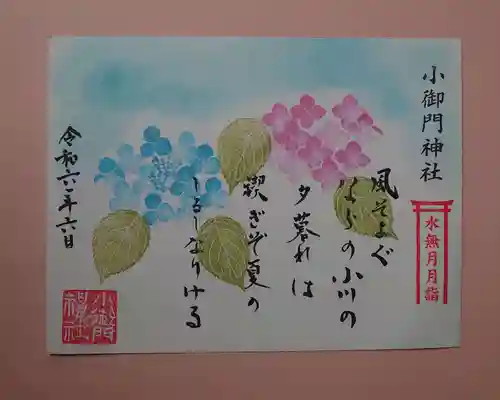 小御門神社
水無月月詣
風そよぐ
ならの小川の
夕暮れは
禊ぎぞ夏の
しるしなりける
令和六年六月
小御門
神社